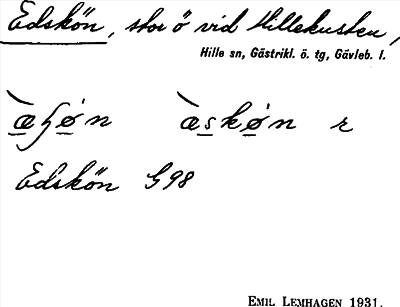 Edskön, stor ö vid Hillekusten,
Hille sn, Gästrikl. ö. tg, Gävleb. l.
àskön r
Edskön G98
Emil Lemhagen 1931.